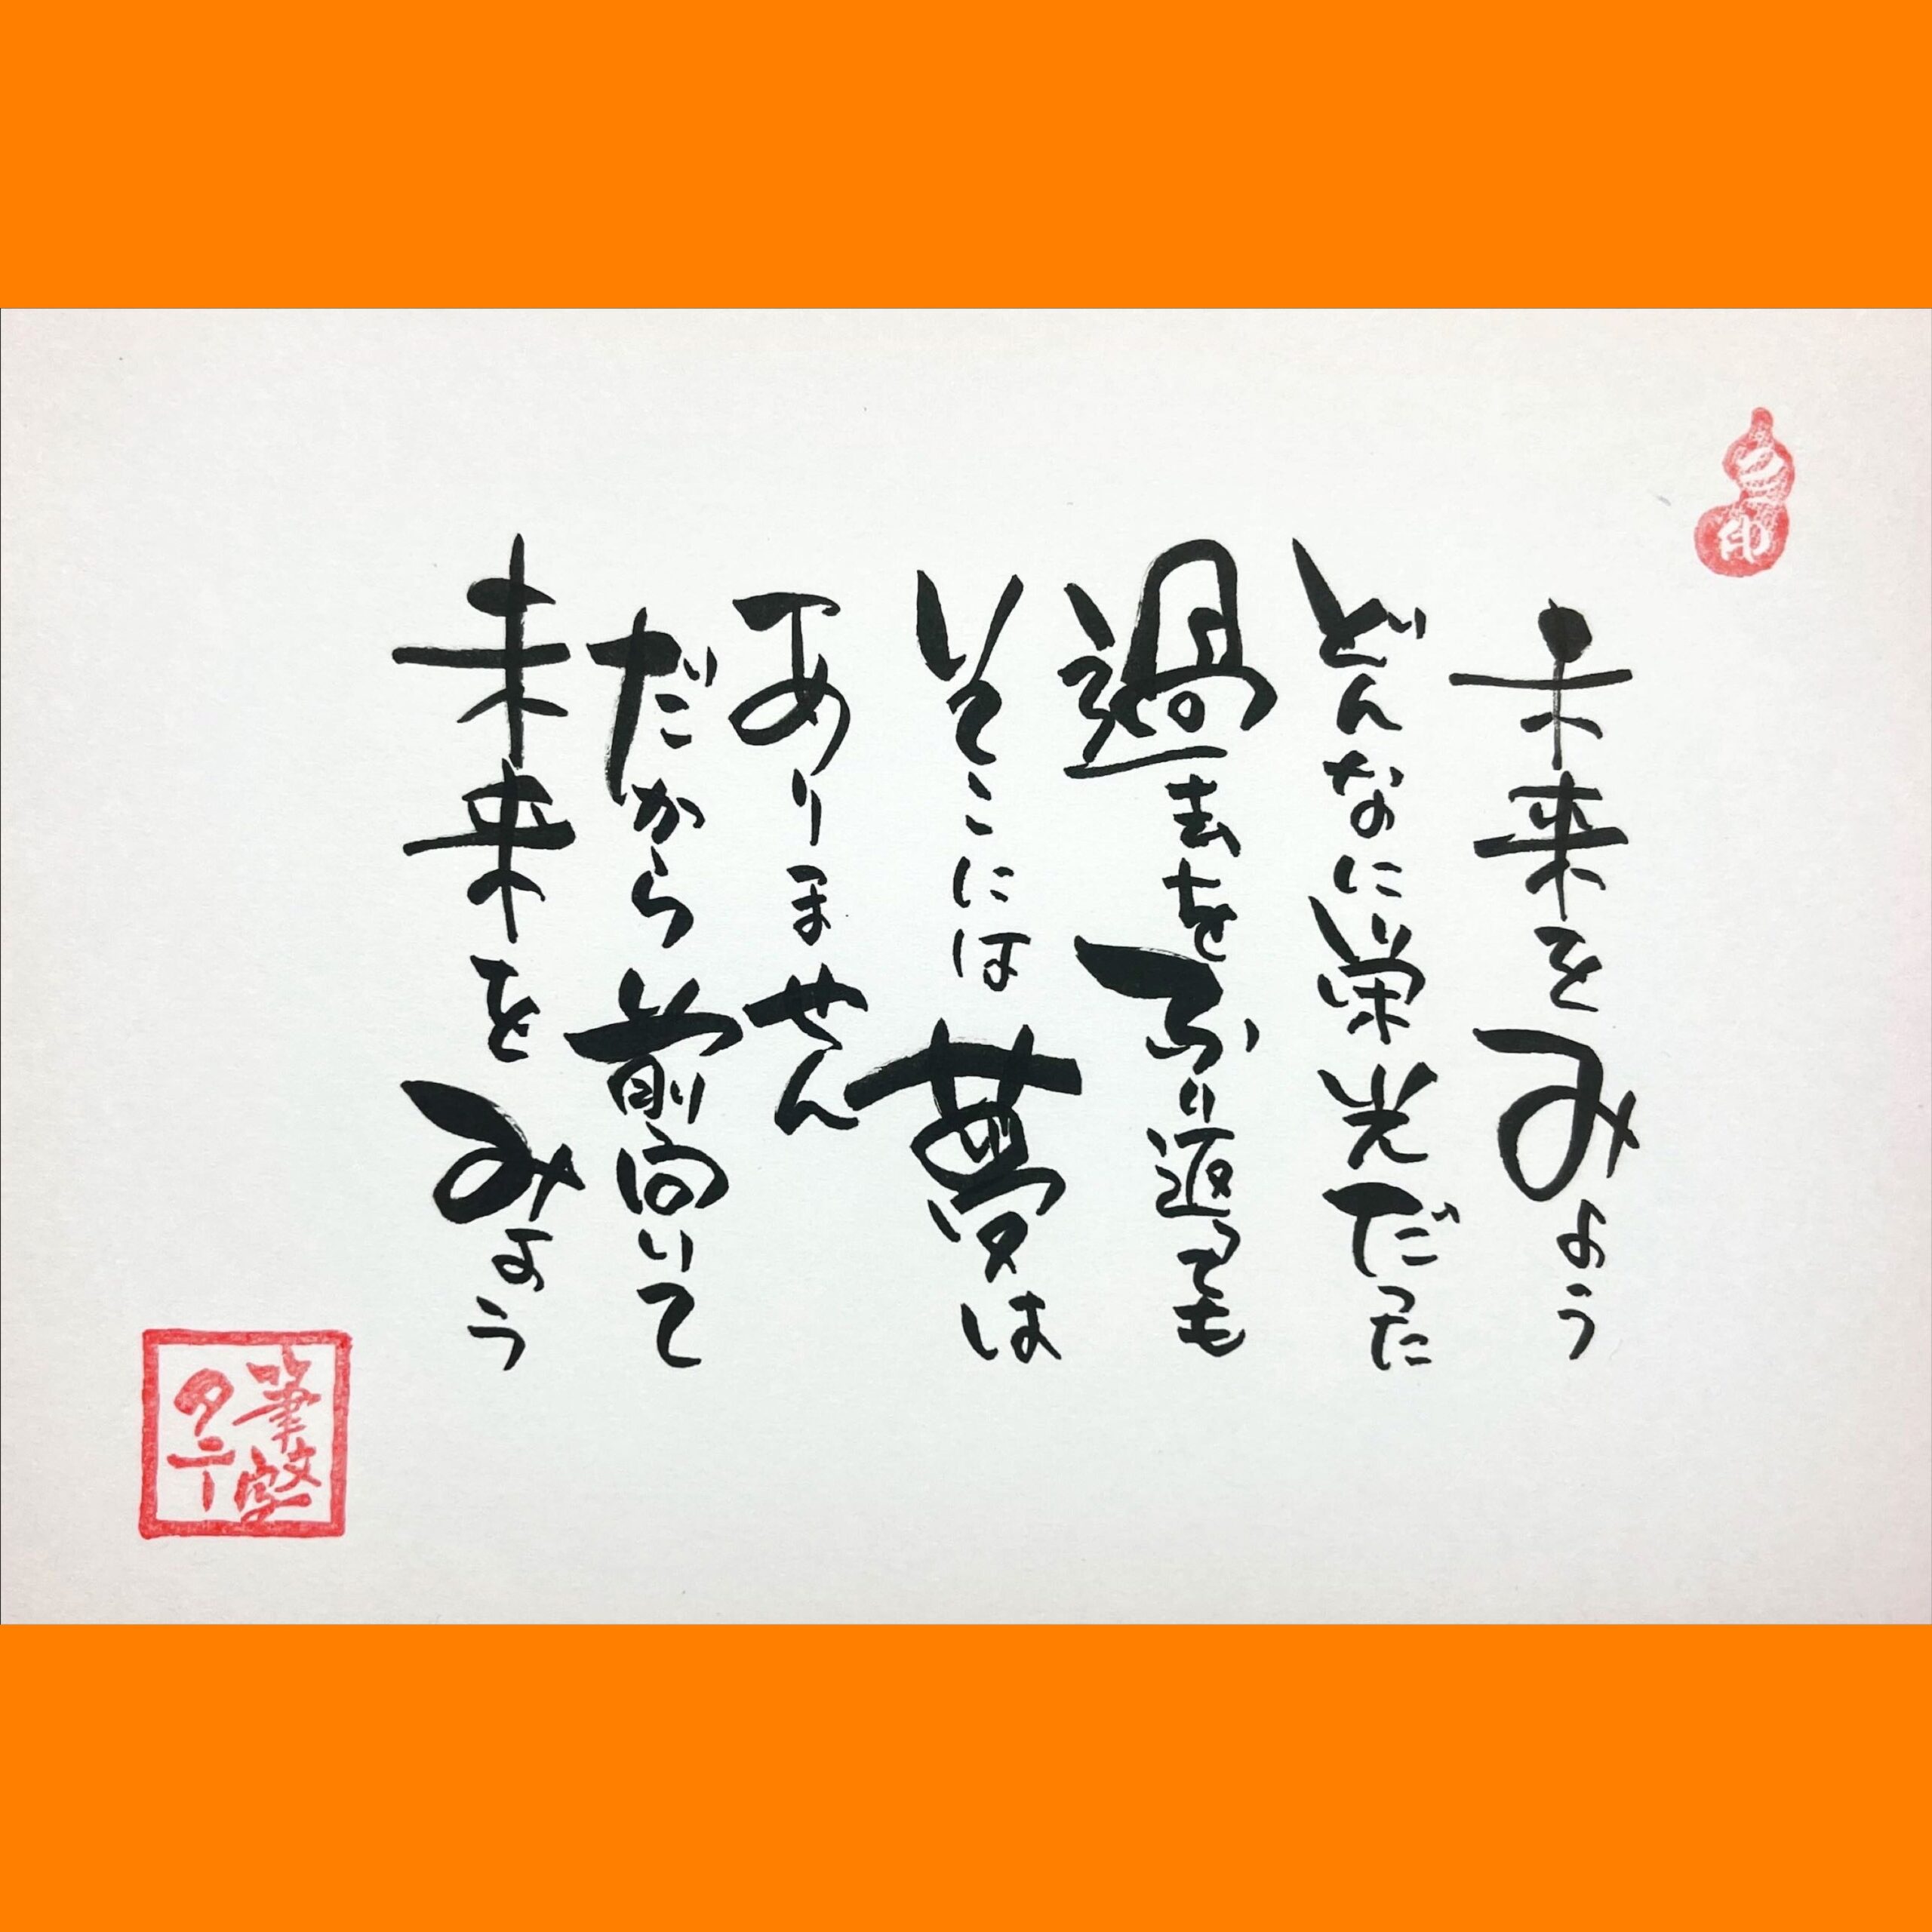 未来をみよう
どんなに栄光だった
過去をふり返っても
そこには夢は
ありません
だから前向いて
未来をみよう
筆文字
タニ
印